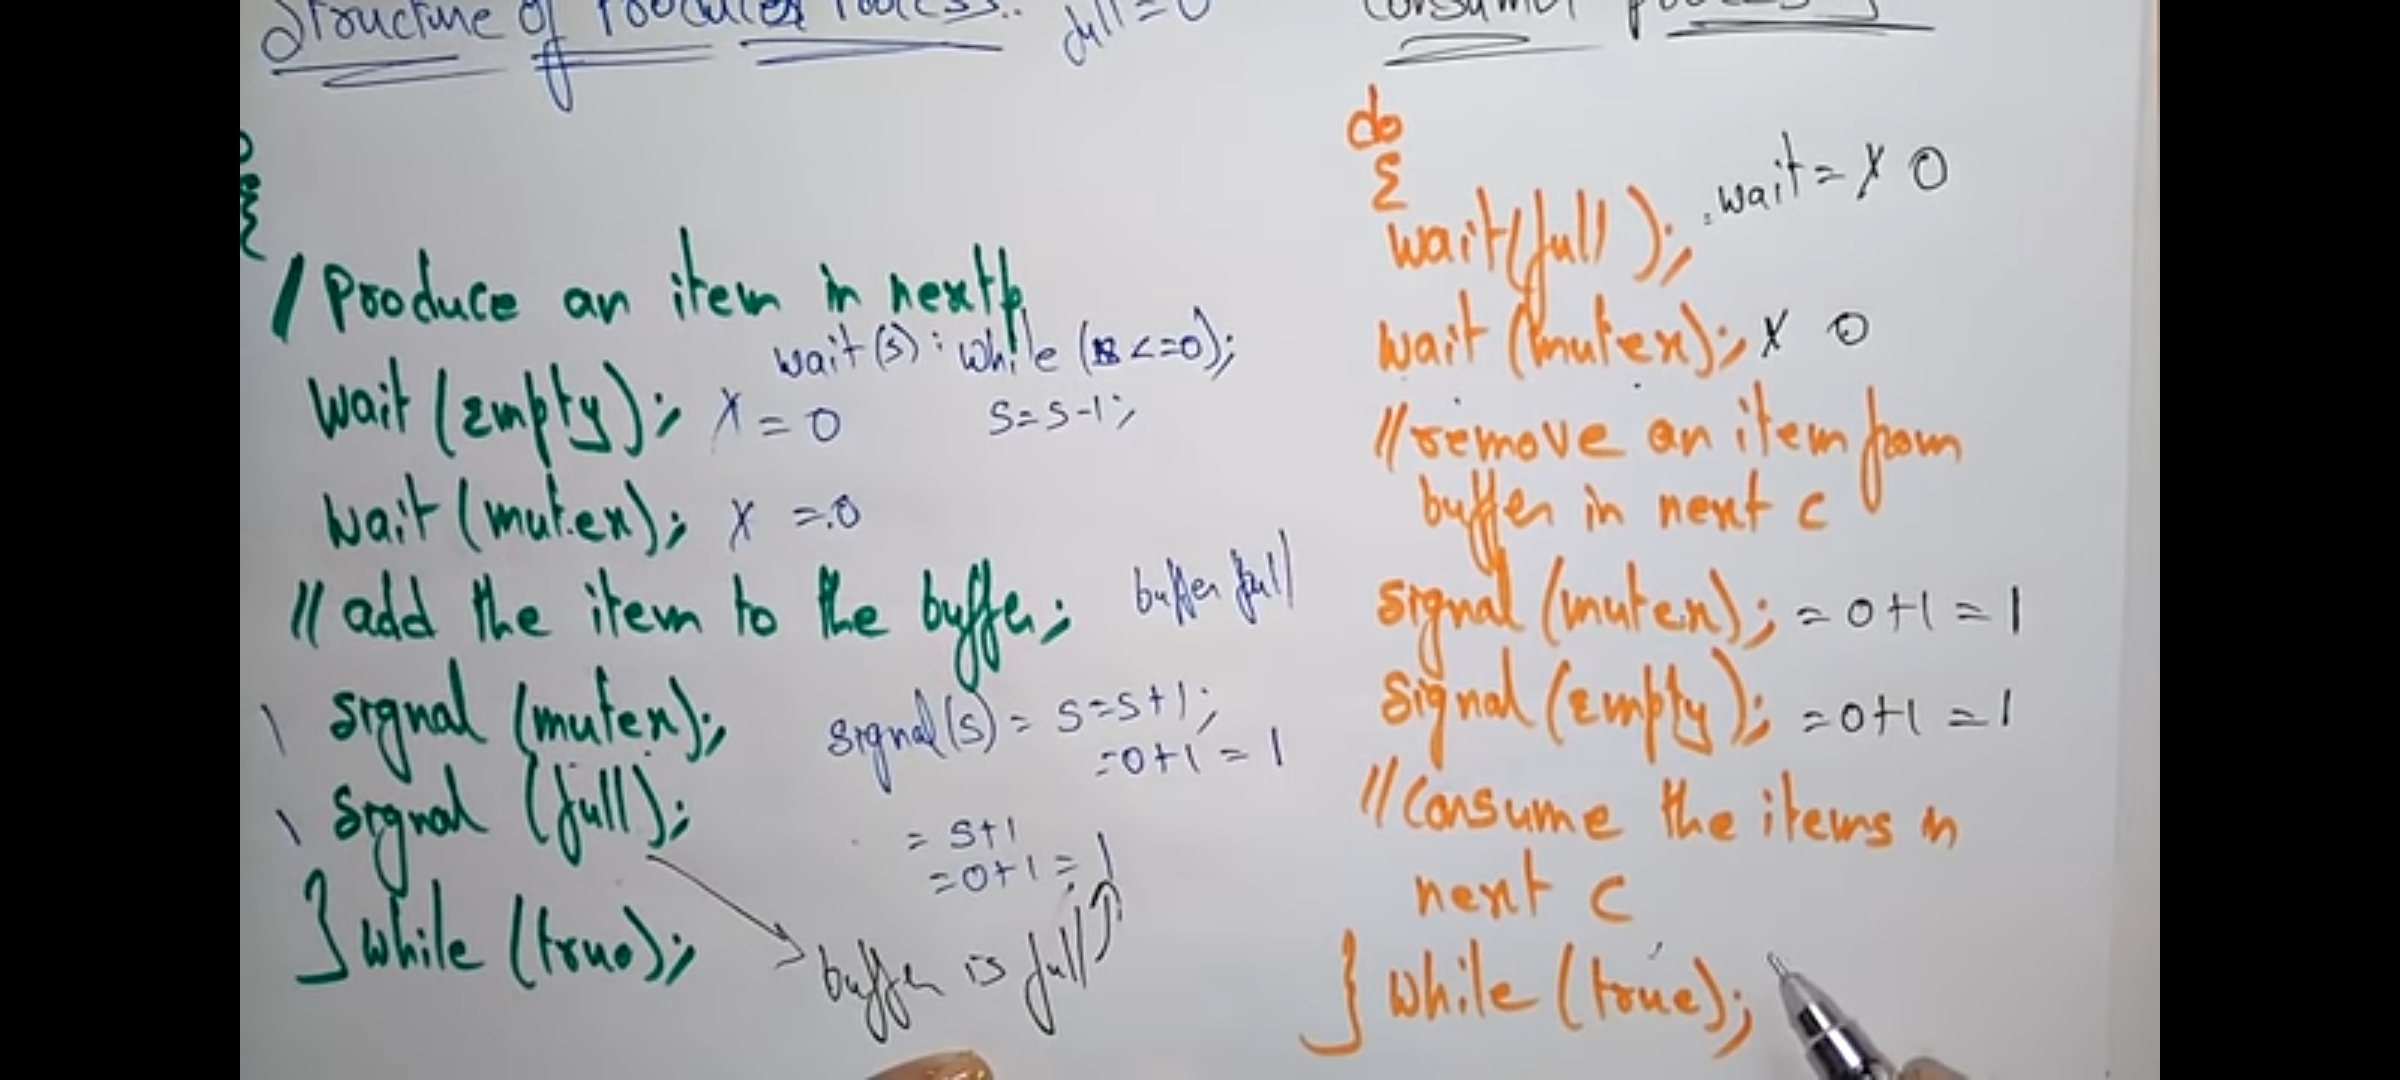 Structure of Producer Process..
full = 0
{
/ Produce an item in nextp
wait(s) : while (s <=0);
s=s-1;
wait (Empty); X = 0
wait (mutex); X =.0
// add the item to the buffer;
buffer full
\ signal (mutex);
signal(s) = s=s+1;
=0+1 = 1
\ signal (full);
= s+1
=0+1 = 1
} while (true);
buffer is full
Consumer process
do
{
wait(full); .wait = X 0
wait (mutex); X 0
// remove an item from
buffer in next c
signal (mutex); = 0+1 = 1
signal (Empty); =0+1 =1
// Consume the items in
next c
} while (true);